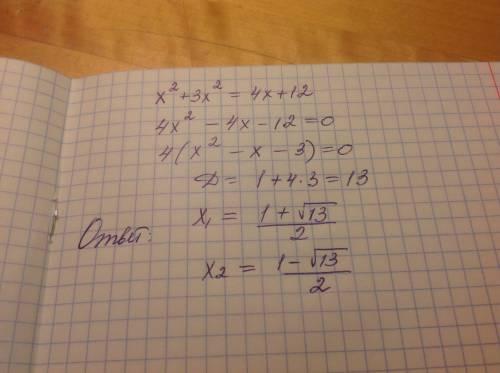 x² + 3x² = 4x + 12
4x² - 4x - 12 = 0
4(x² - x - 3) = 0
D = 1 + 4·3 = 13
Ответ: x₁ = (1 + √13)/2
x₂ = (1 - √13)/2